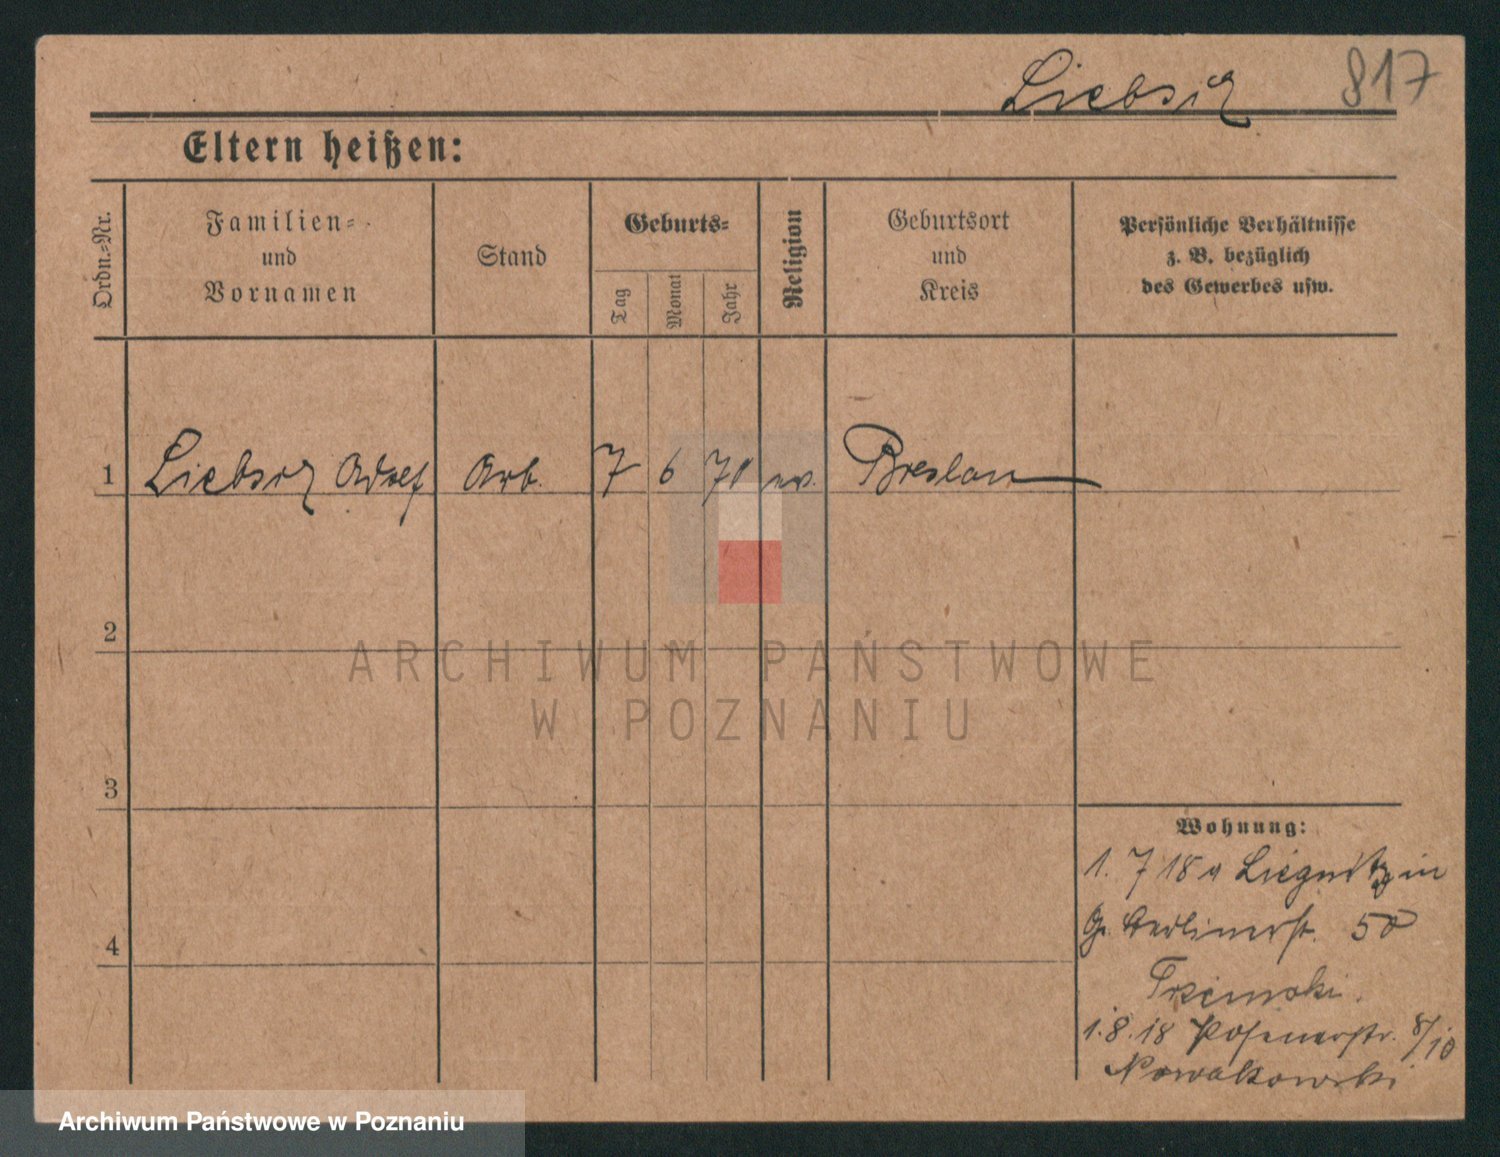 Liebsch 817
Eltern heißen:
Ordn.-Nr.
Familien-
und
Vornamen
Stand
Geburts-
Tag
Monat
Jahr
Religion
Geburtsort
und
Kreis
Persönliche Verhältnisse
z. B. bezüglich
des Gewerbes usw.
1 Liebsch Adolf Arb. 7 6 70 ev. Breslau
2
3
4
ARCHIWUM PAŃSTWOWE
W POZNANIU
Wohnung:
1. 7 18 Liegnitz in
Berlinerst. 50
1.8.18 Posenerstr. 8/10
Nowakowski
Archiwum Państwowe w Poznaniu